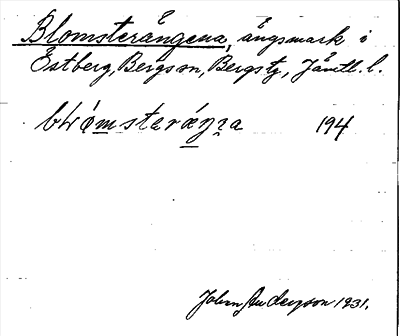 Blomsterängena, ängsmark i
Östberg, Bergson, Bergs tg, Jämtl. l.
194
John Andersson 1931.